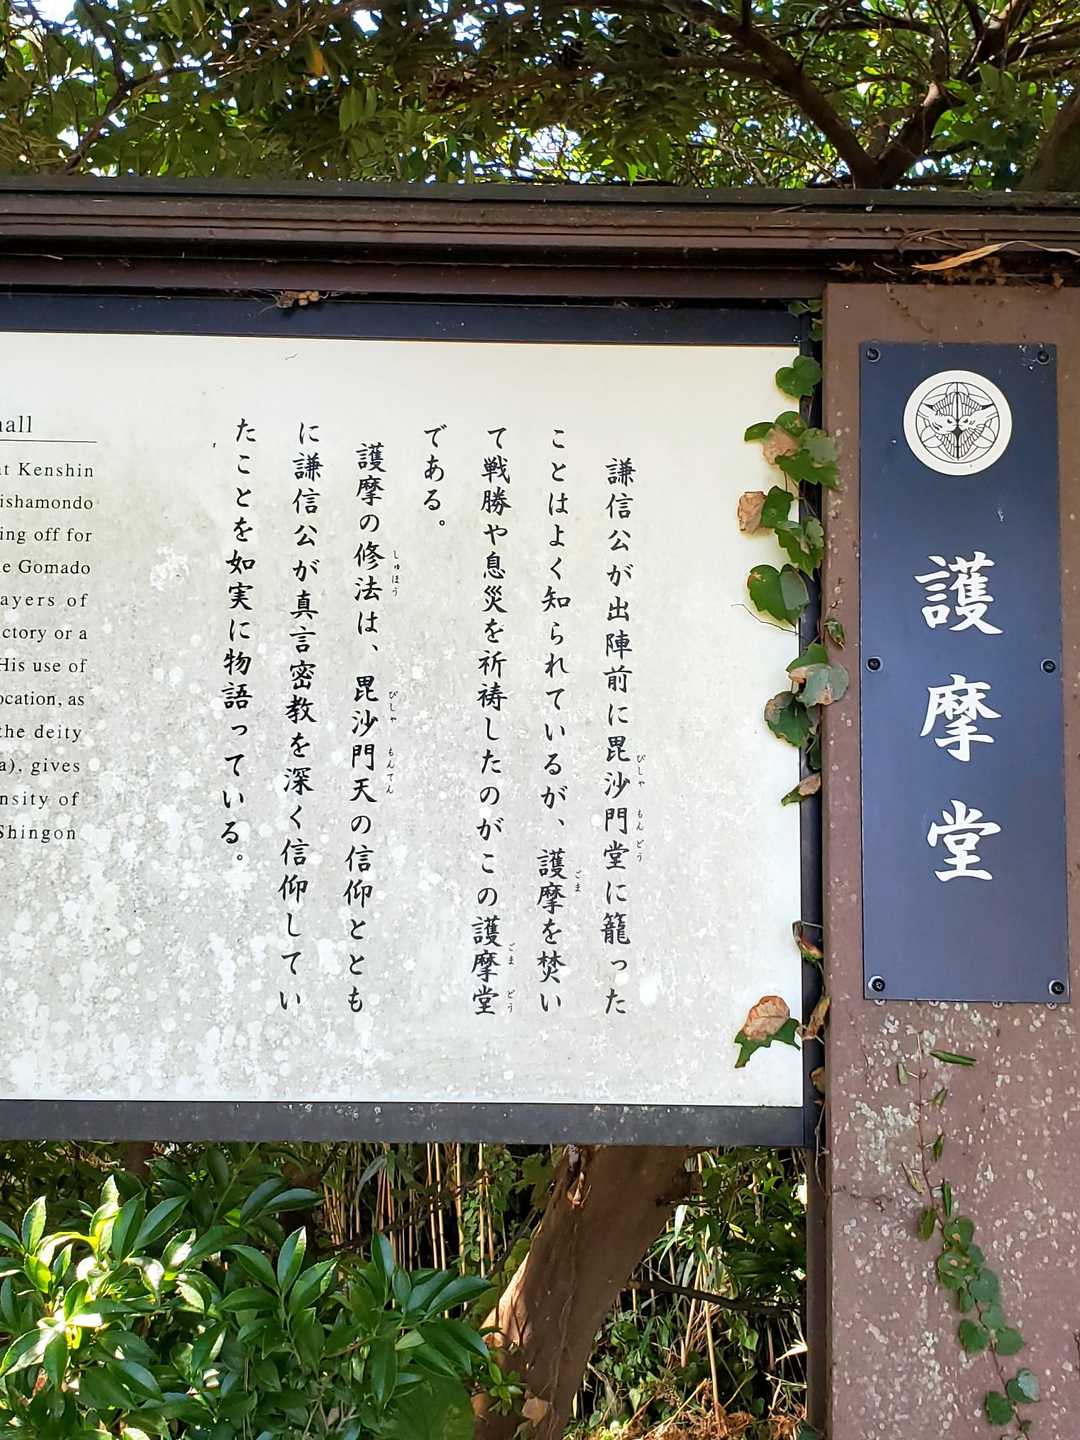 護摩堂
謙信公が出陣前に毘沙門堂に籠った
びしゃ もんどう
ことはよく知られているが、護摩を焚い
ごま
て戦勝や息災を祈祷したのがこの護摩堂
ごま どう
である。
護摩の修法は、毘沙門天の信仰ととも
しゅほう びしゃ もんてん
に謙信公が真言密教を深く信仰してい
たことを如実に物語っている。
Kenshin
ing off for
Gomado
of
or a
His use of
as
the deity
gives
of
Shingon